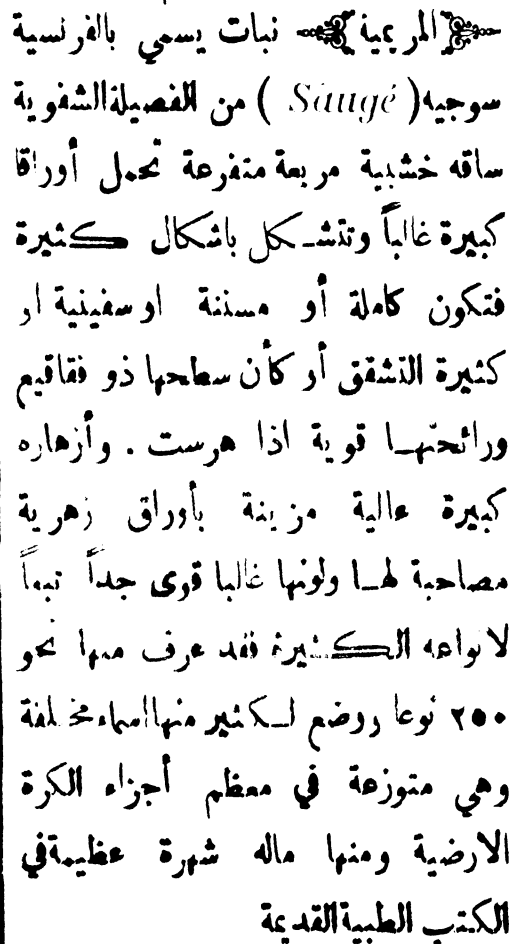 ﴿المريمية﴾ نبات يسمي بالفرنسية
سوجيه (Saugé) من الفصيلة الشفوية
ساقه خشبية مربعة متفرعة تحمل أوراقا
كبيرة غالباً وتتشكل باشكال كثيرة
فتكون كاملة أو مسننة او سفينية او
كثيرة التشقق أو كأن سطحها ذو فقاقيع
ورائحتها قوية اذا هرست . وأزهاره
كبيرة عالية مزينة بأوراق زهرية
مصاحبة لها ولونها غالبا قوى جداً تبعاً
لانواعه الكثيرة فقد عرف منها نحو
٢٥٠ نوعا ووضع لكثير منها اسماء مختلفة
وهي متوزعة في معظم أجزاء الكرة
الارضية ومنها ماله شهرة عظيمة في
الكتب الطبية القديمة